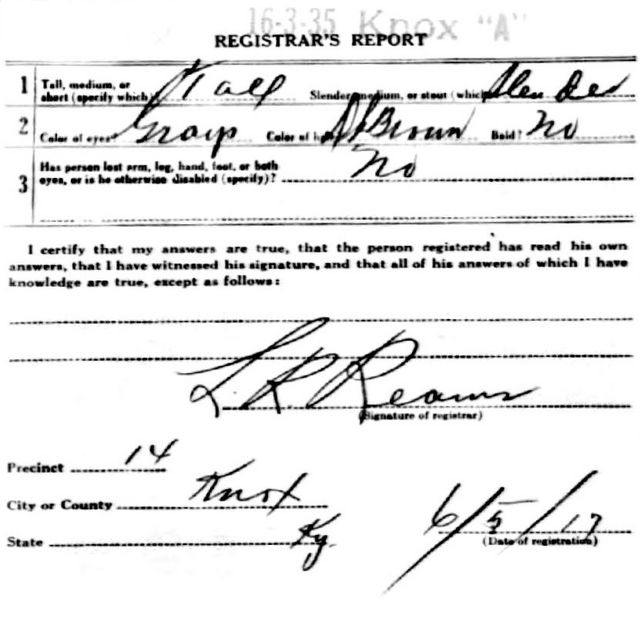 16-3-35 Knox "A"
REGISTRAR'S REPORT
1 Tall, medium, or short (specify which)? Tall Slender, medium, or stout (which)? Slender
2 Color of eyes? Gray Color of hair? Brown Bald? No
3 Has person lost arm, leg, hand, foot, or both
eyes, or is he otherwise disabled (specify)? No
I certify that my answers are true, that the person registered has read his own
answers, that I have witnessed his signature, and that all of his answers of which I have
knowledge are true, except as follows:
L. R. Reams
(Signature of registrar)
Precinct 14
City or County Knox
State Ky.
6/5/17
(Date of registration)